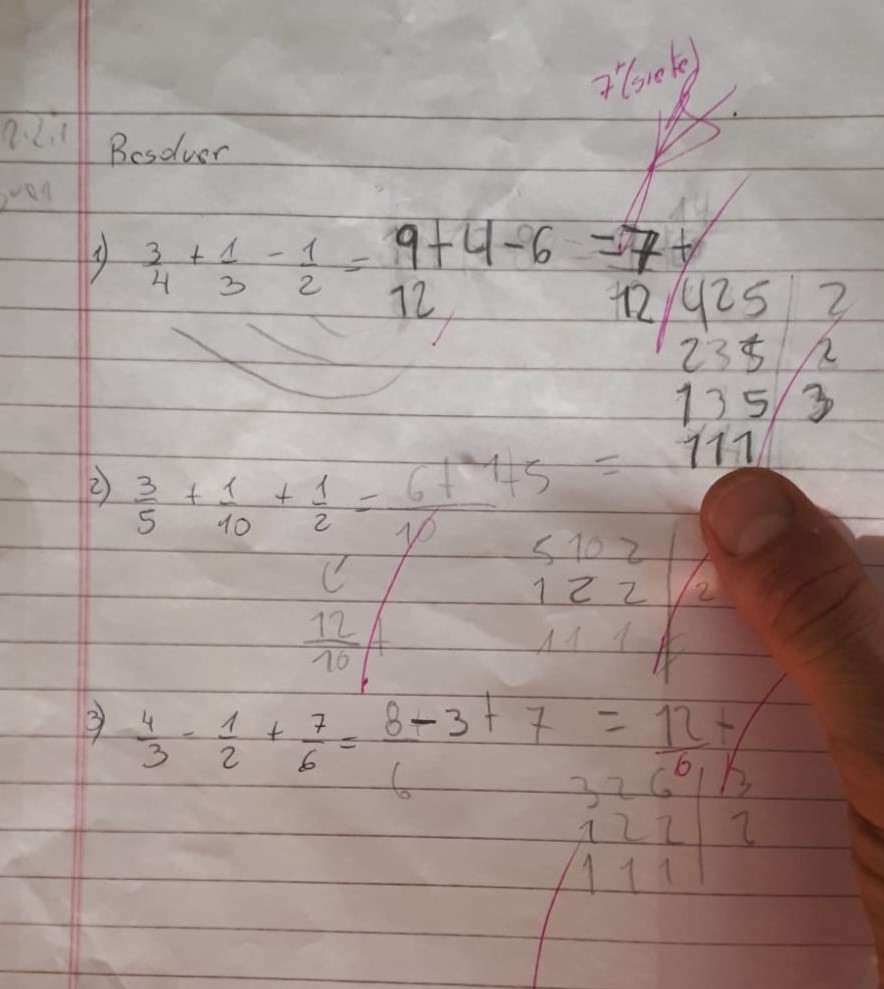 7+(siete)
Resolver
1) 3/4 + 1/3 - 1/2 = 9+4-6/12 = 7/12 +
425 | 2
235 | 2
135 | 3
111
2) 3/5 + 1/10 + 1/2 = 6+1+5/10 =
510 2
1 2 2 | 2
12/10 +
11 1
3) 4/3 - 1/2 + 7/6 = 8-3+7/6 = 12/6 +
3 2 6 | 3
1 2 2 | 2
1 1 1